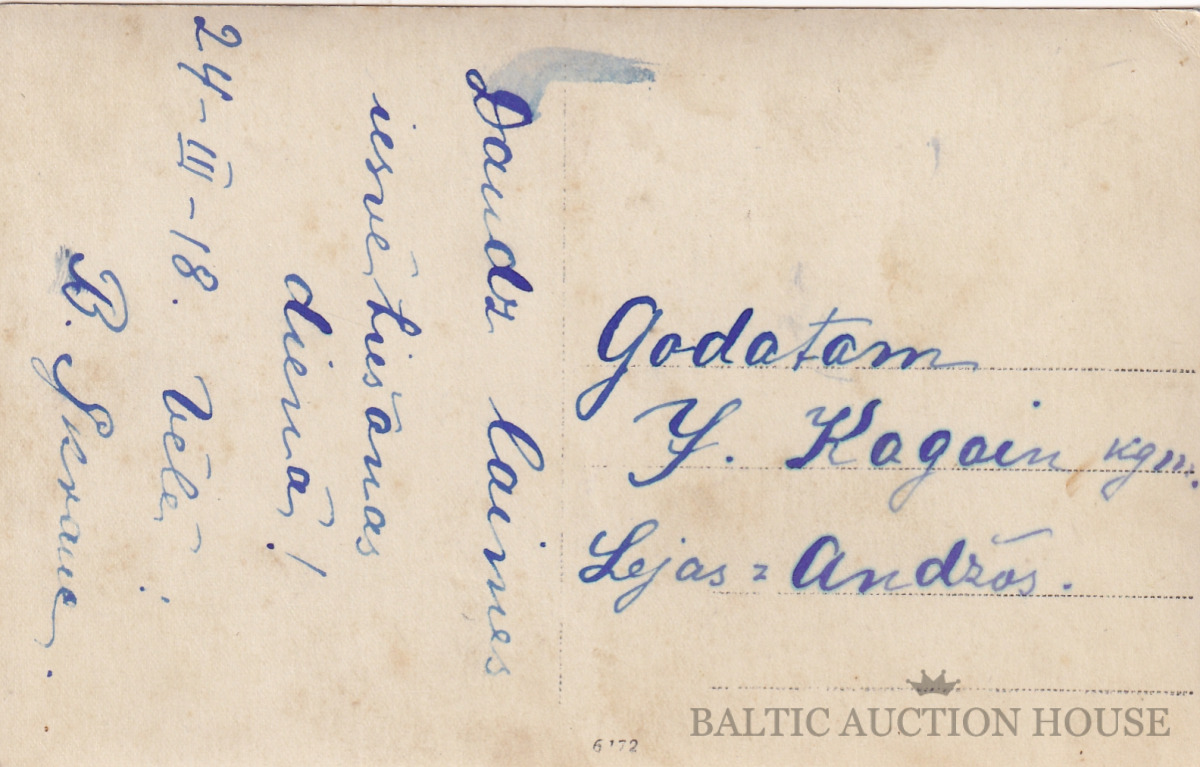 Daudz laimes
iesvētīšanas
dienā!
24-III-18. Vēlē
B. Skraue.
Godātam
J. Kagain kgm.
Lejas = Andžōs.
6172
BALTIC AUCTION HOUSE